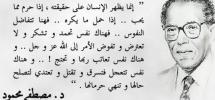 " إنما يظهر الإنسان على حقيقته ، إذا حرم مما
يحب .. إذا حمل ما يكره .. فهنا تتفاضل
النفوس .. فهناك نفس تحمد و تشكر و لا
تعترض و تفوض الأمر إلى الله عز و جل .. و
هناك نفس تعاتب ربها و تحتج ! .. و هناك
نفس تنعجل فتسرق و تقتل و تعتدي لتصلح
حالها و تنهي حرمانها . "
د . مصطفى محمود